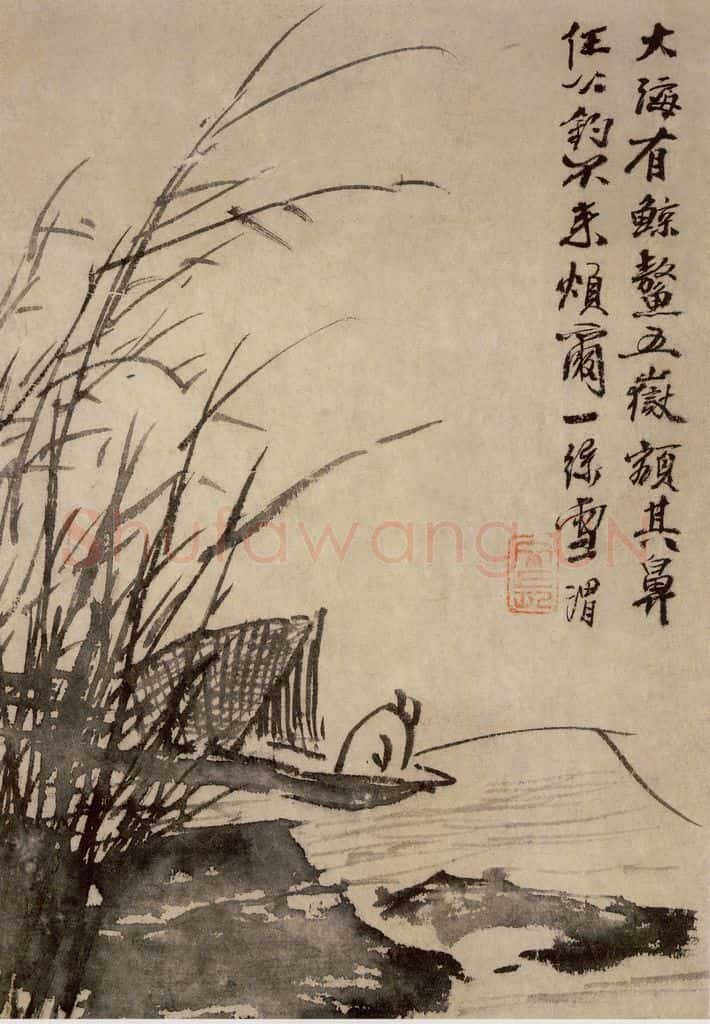 大海有鯨鰲五嶽額其鼻
任公釣不來煩爾一絲雪 渭
Shufawang.CN